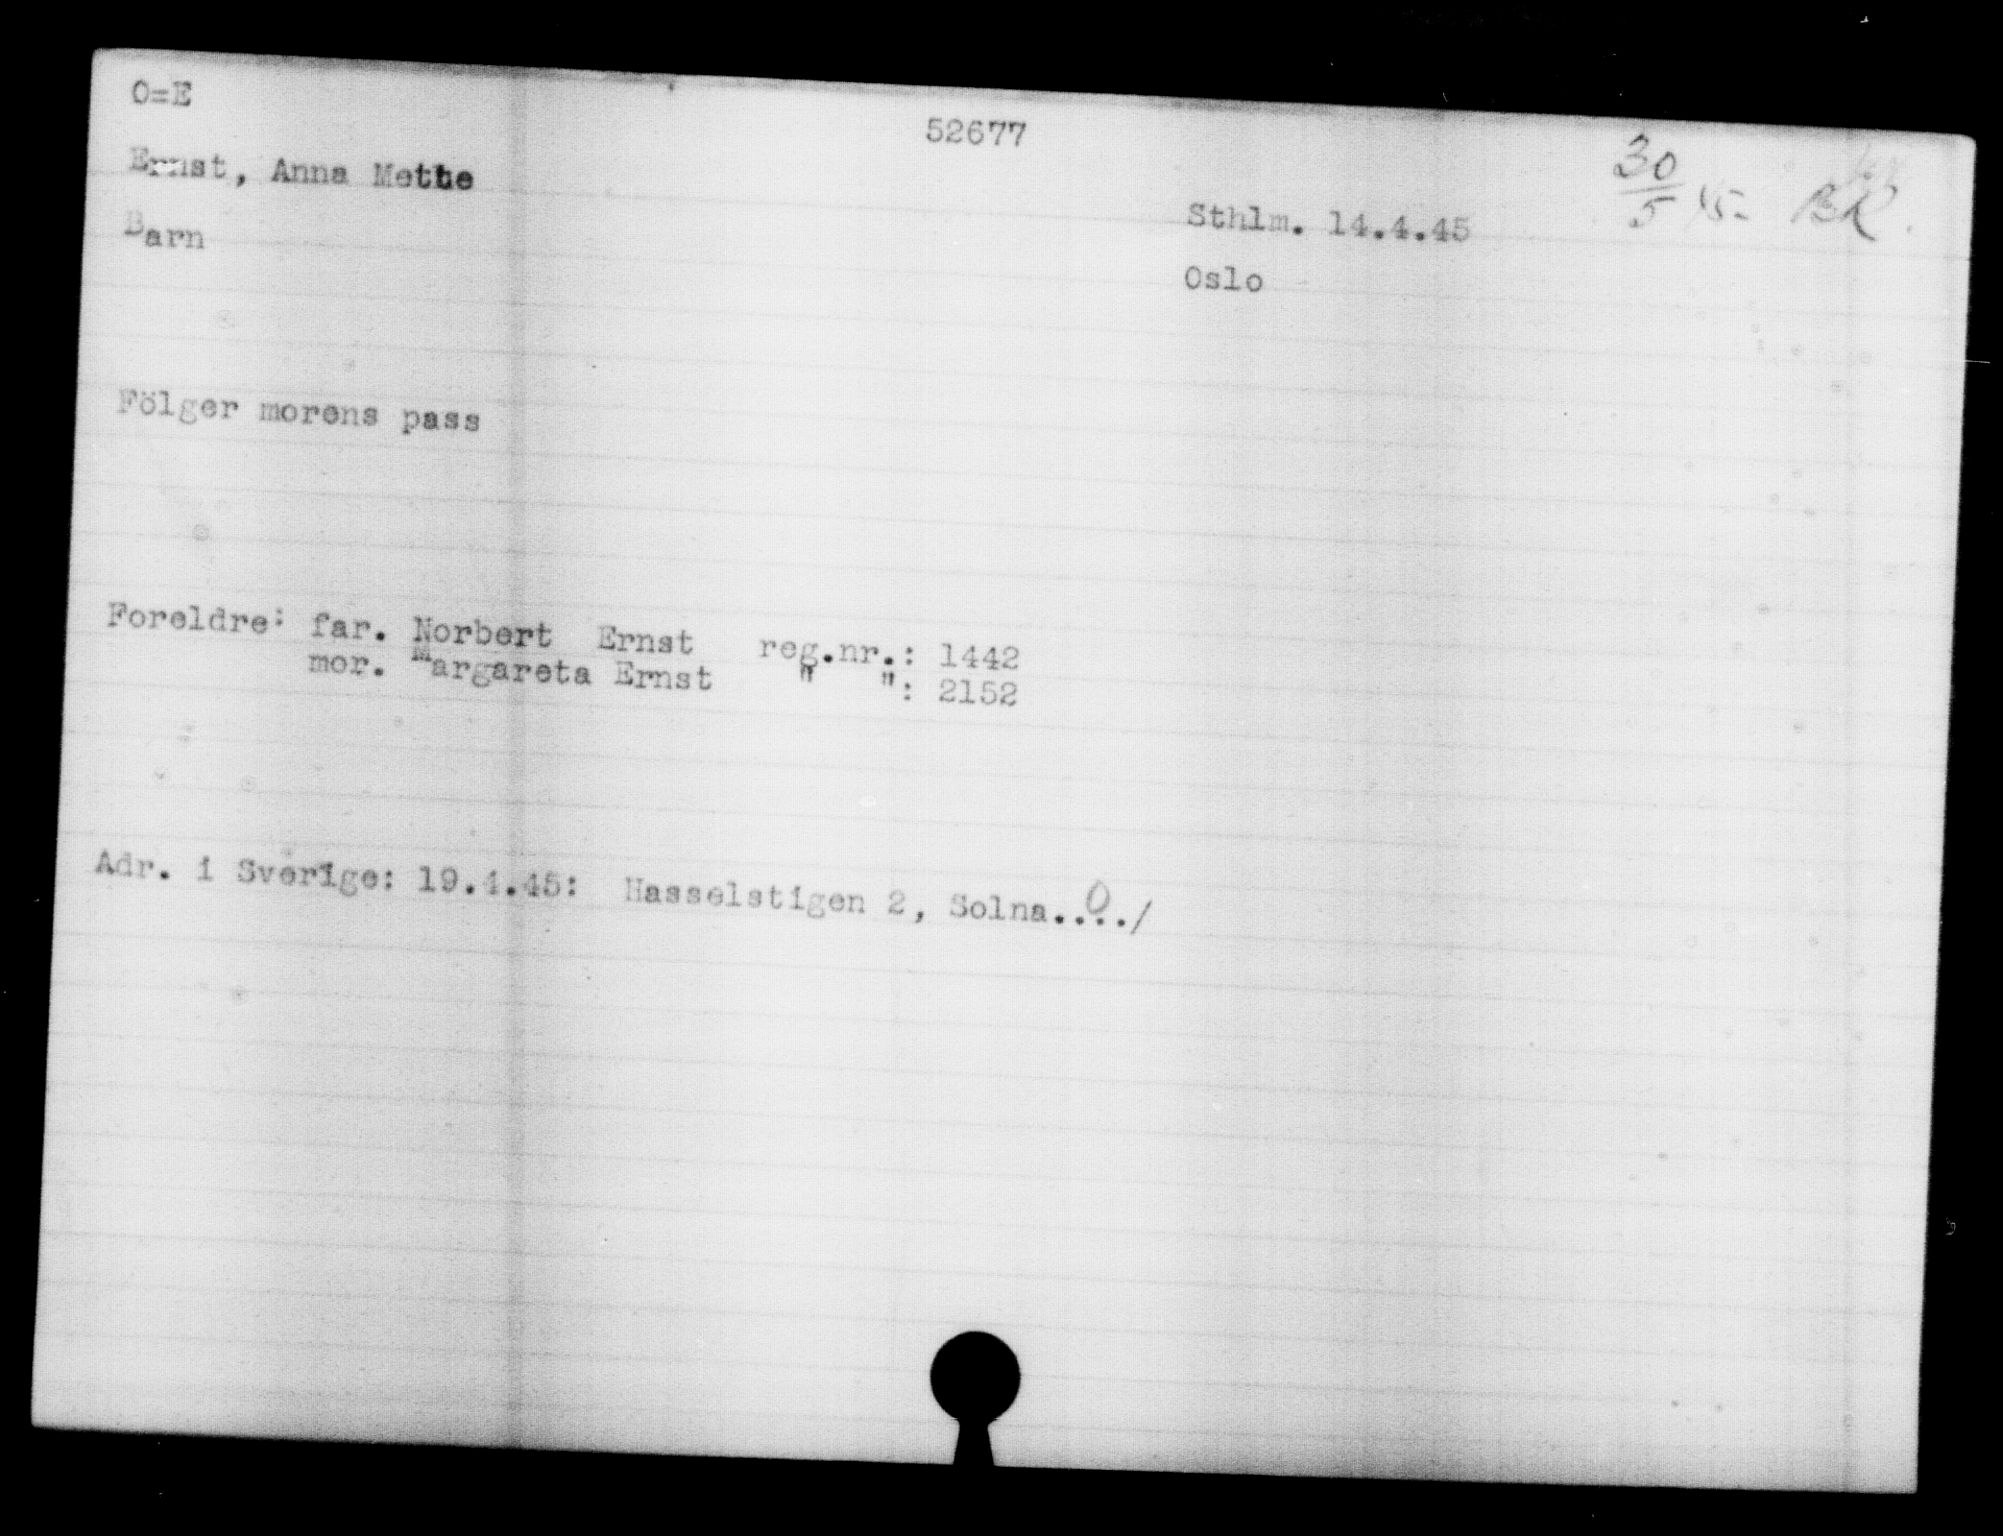 O=E
52677
30/5 45- BK.
Ernst, Anna Mette
Sthlm. 14.4.45
Barn
Oslo
Fölger morens pass
Foreldre: far. Norbert Ernst reg.nr.: 1442
mor. Margareta Ernst " ": 2152
Adr. i Sverige: 19.4.45: Hasselstigen 2, Solna..../
O